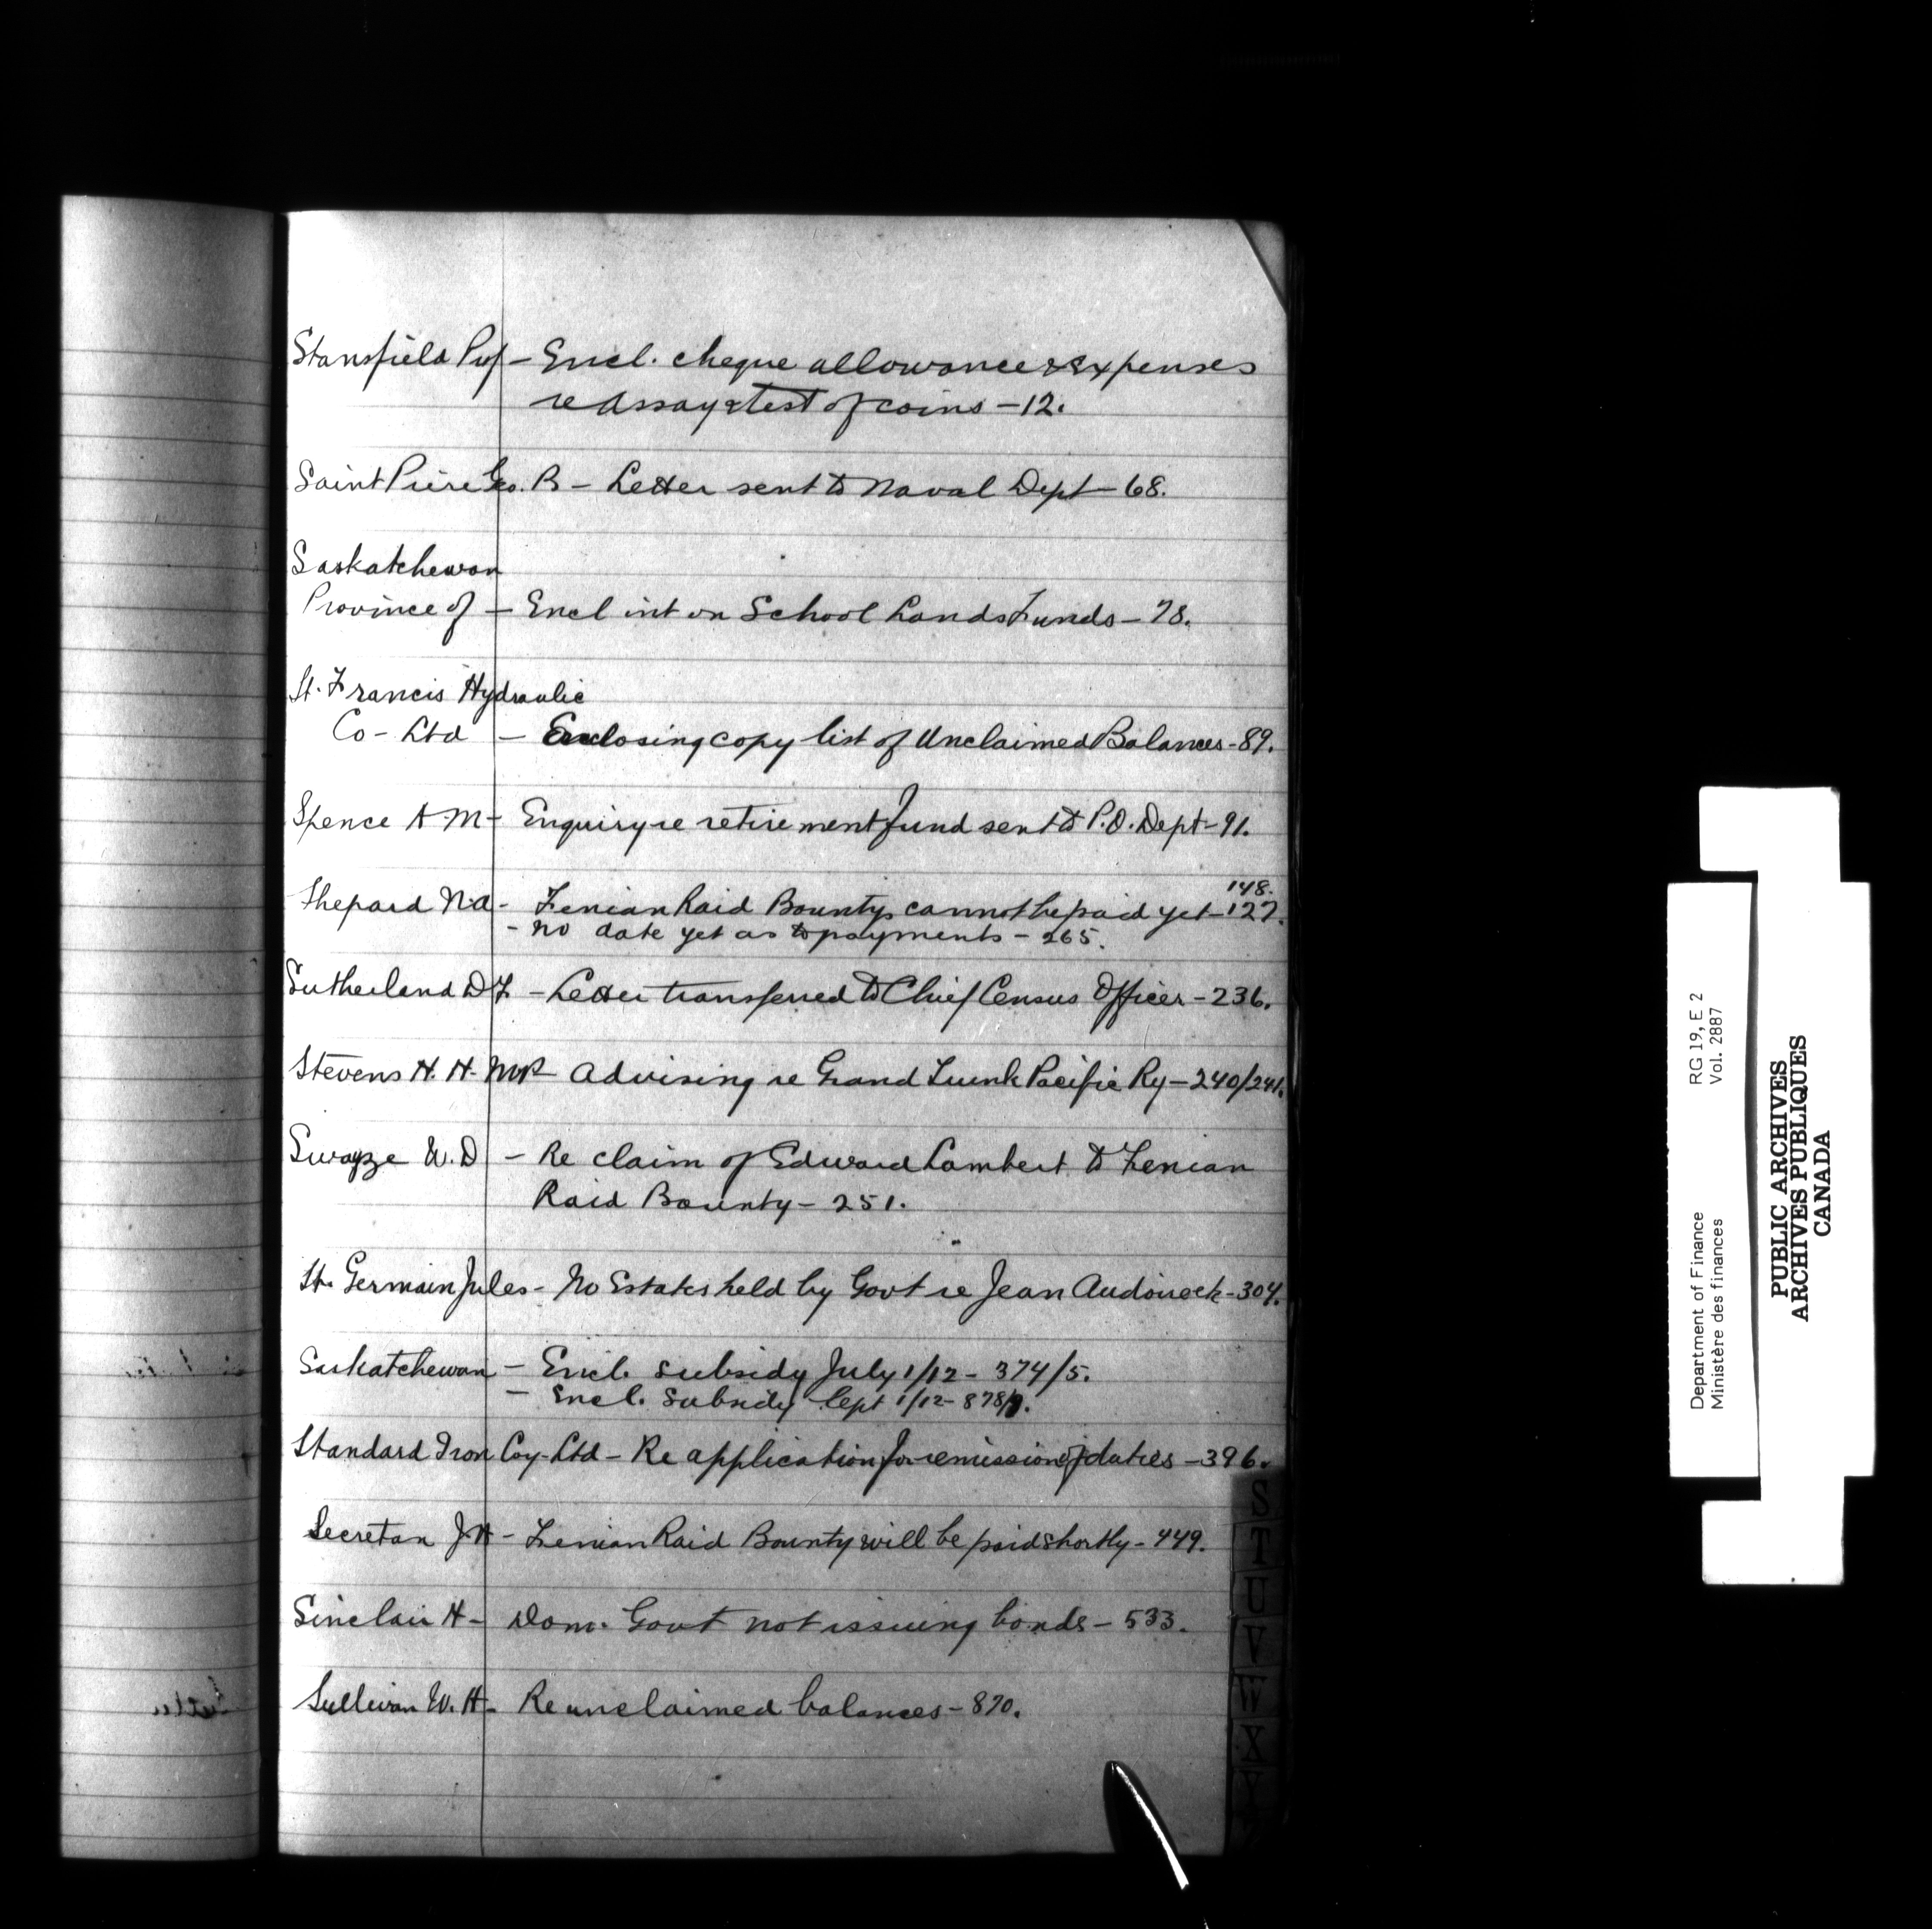 Stansfield Prof - Encl. cheque allowance & expenses
re assay & test of coins - 12.
Saint Pierre Geo. B - Letter sent to Naval Dept - 68.
Saskatchewan
Province of - Encl int on School Lands Funds - 78.
St. Francis Hydraulic
Co - Ltd - Enclosing copy list of Unclaimed Balances - 89.
Spence A M - Enquiry re retirement fund sent to P.O. Dept - 91.
148.
Shepard N.A - Fenian Raid Bountys cannot be paid yet - 127.
- no date yet as to payments - 265.
Sutherland D F - Letter transferred to Chief Census Officer - 236.
Stevens H. H. MP - Advising re Grand Trunk Pacific Ry - 240/241.
Swayze W. D - Re claim of Edward Lambert to Fenian
Raid Bounty - 251.
St. Germain Jules - No Estates held by Govt re Jean - 304.
Saskatchewan - Encl. subsidy July 1/12 - 374/5.
- Encl. Subsidy Sept 1/12 - 878/9.
Standard Iron Coy - Ltd - Re application for remission of duties - 396.
Secretan J. H - Fenian Raid Bounty will be paid shortly - 449.
Sinclair H - Dom. Govt not issuing bonds - 533.
Sullivan W. H - Re unclaimed balances - 870.
S
T
U
V
W
X
Y
RG 19, E 2
Vol. 2887
Department of Finance
Ministère des finances
PUBLIC ARCHIVES
ARCHIVES PUBLIQUES
CANADA